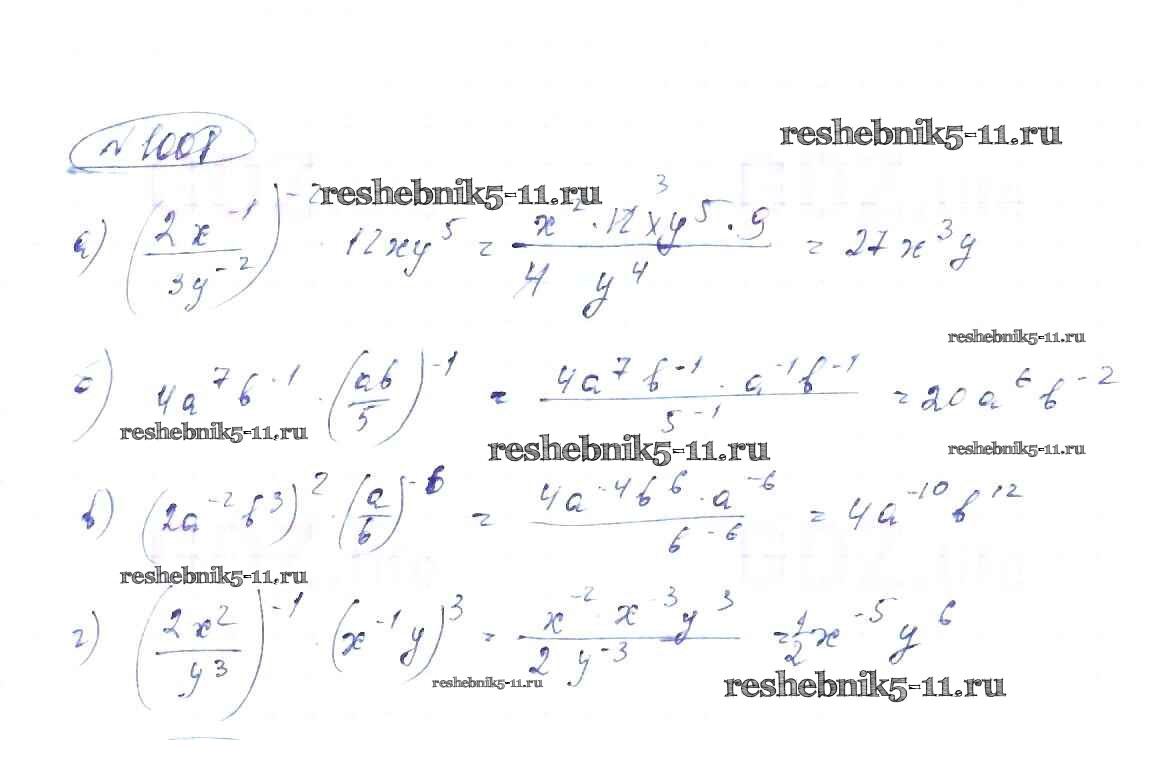 №1008
reshebnik5-11.ru
reshebnik5-11.ru
а) (2x^-1 / 3y^-2)^-2 · 12xy^5 = x^2 · 12^3 xy^5 · 9 / 4 y^4 = 27x^3y
reshebnik5-11.ru
б) 4a^7b^-1 · (ab/5)^-1 = 4a^7b^-1 · a^-1b^-1 / 5^-1 = 20a^6b^-2
reshebnik5-11.ru
reshebnik5-11.ru
reshebnik5-11.ru
в) (2a^-2b^3)^2 · (a/b)^-6 = 4a^-4b^6 · a^-6 / b^-6 = 4a^-10b^12
reshebnik5-11.ru
г) (2x^2 / y^3)^-1 · (x^-1y)^3 = x^-2 · x^-3y^3 / 2y^-3 = 1/2 x^-5y^6
reshebnik5-11.ru
reshebnik5-11.ru